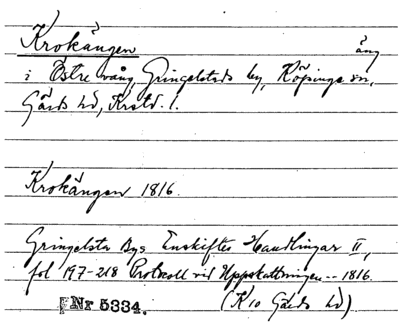 Krokängen
äng
i Östre vång, Gringelstads by, Köpinge sn,
Gärds hd, Krstd. l.
Krokängen 1816.
Gringelsta Bys Enskiftes Handlingar II,
fol 197-218 Protkoll vid Uppskattningen -- 1816.
Nr 5334. (K10 Gärds hd)